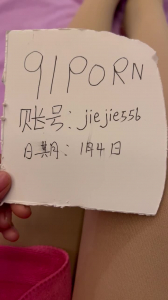 91PORN
账号：jiejie556
日期：1月4日